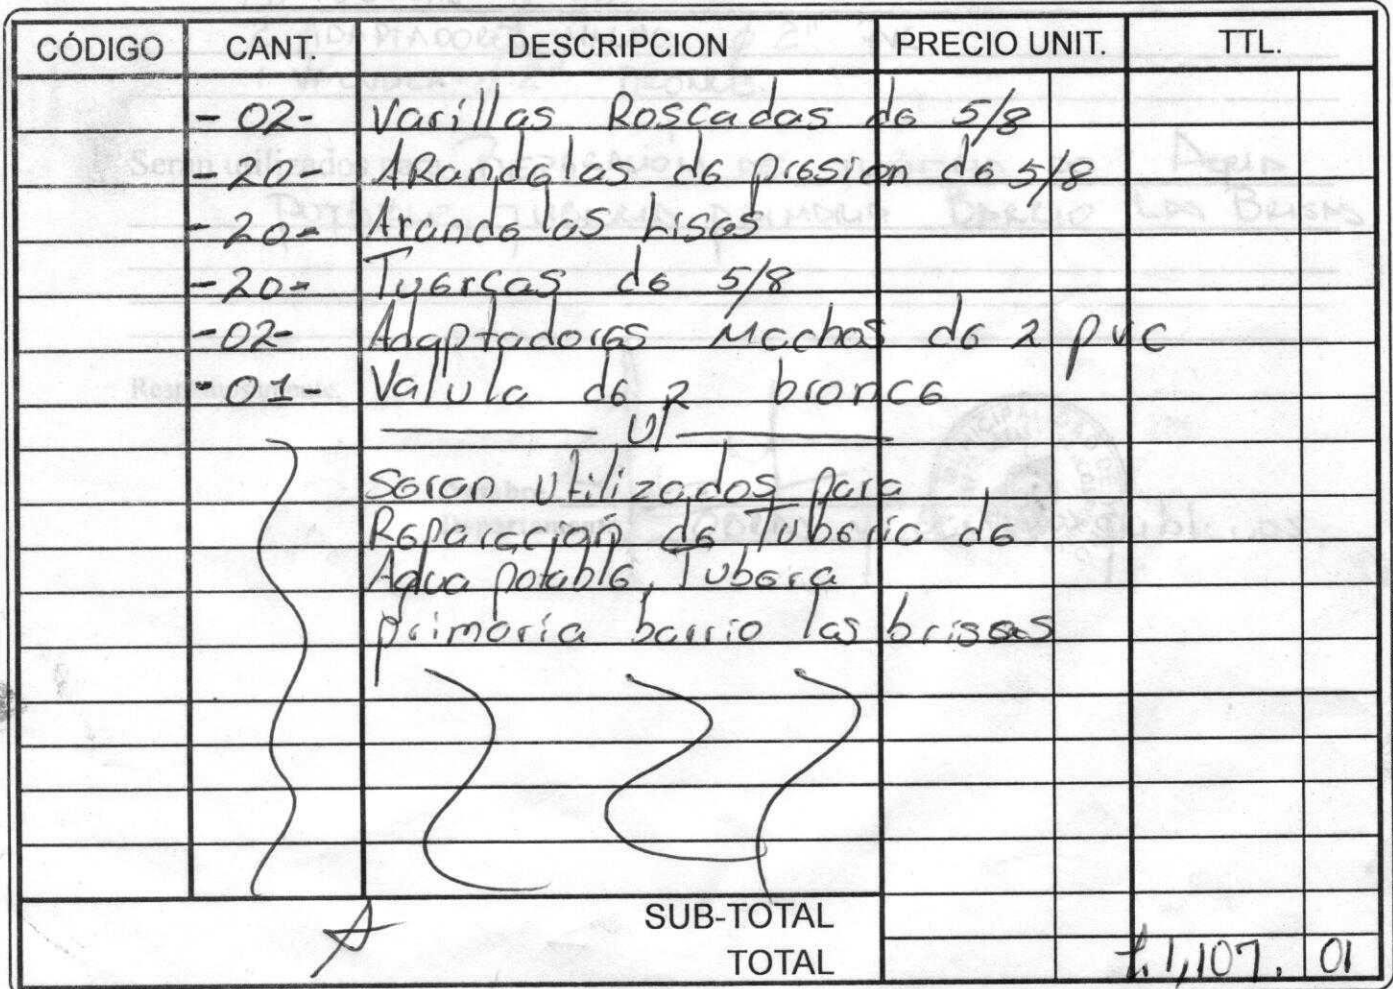 CÓDIGO CANT. DESCRIPCION PRECIO UNIT. TTL.
-02- Varillas Roscadas de 5/8
-20- ARandelas de presion de 5/8
-20- Arandelas Lisas
-20- Tuercas de 5/8
-02- Adaptadores Machos de 2 pvc
-01- Valula de 2 bronce
Ul
Seran utilizados para
Reparación de Tuberia de
Agua potable, Tubera
primaria barrio las brisas
SUB-TOTAL
TOTAL L.1,107. 01